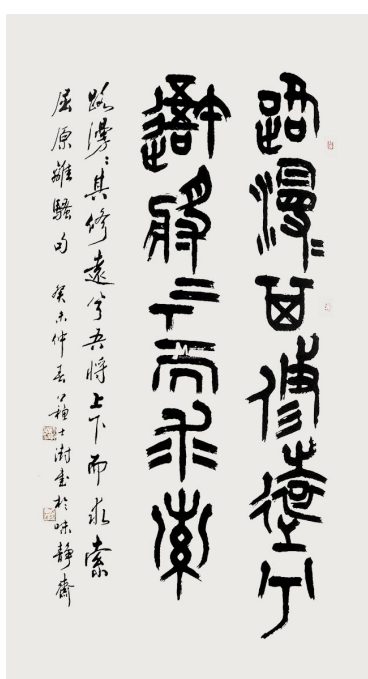 路漫〻其修遠兮
吾將上下而求索
路漫〻其修遠兮吾將上下而求索
屈原離騷句 癸未仲春 蘇士澍書於味靜齋